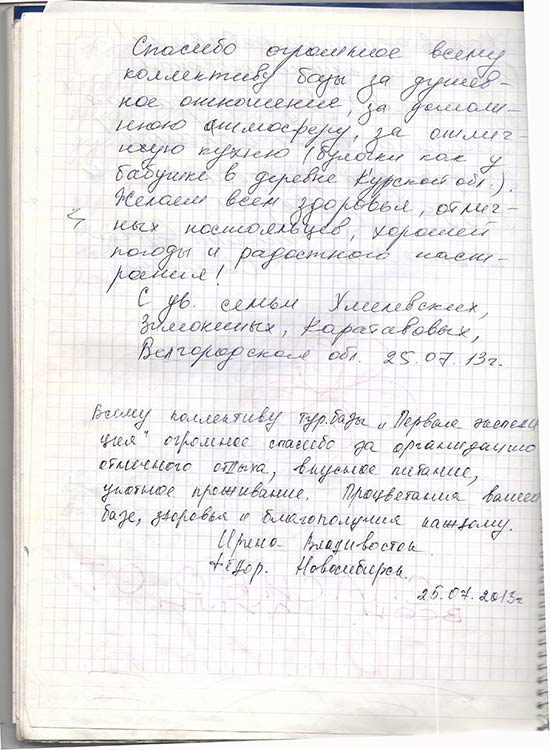 Спасибо огромное всему
коллективу базы за душев-
ное отношение, за домаш-
нюю атмосферу, за отлич-
ную кухню (булочки как у
бабушке в деревне Курской обл.).
Желаем всем здоровья, отлич-
ных постояльцев, хорошей
погоды и радостного наст-
роения!
С ув. семьи Хмелевских,
Каратавовых,
Белгородская обл. 25.07.13г.
Всему коллективу тур.базы „Первая экспеди
ция" огромное спасибо за организацию
отличного отдыха, вкусное питание,
уютное проживание. Процветания вашей
базе, здоровья и благополучия каждому.
Ирина Владивосток.
Фёдор. Новосибирск.
25.07.2013г